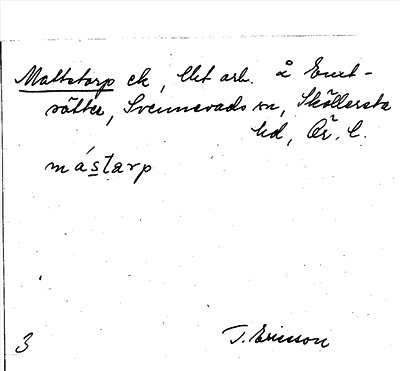 Maltstorp ck, litet arb. å Enet-
sätter, Svennevads sn, Sköllersta
hd, Ör. l.
mástarp
3
T. Ericsson